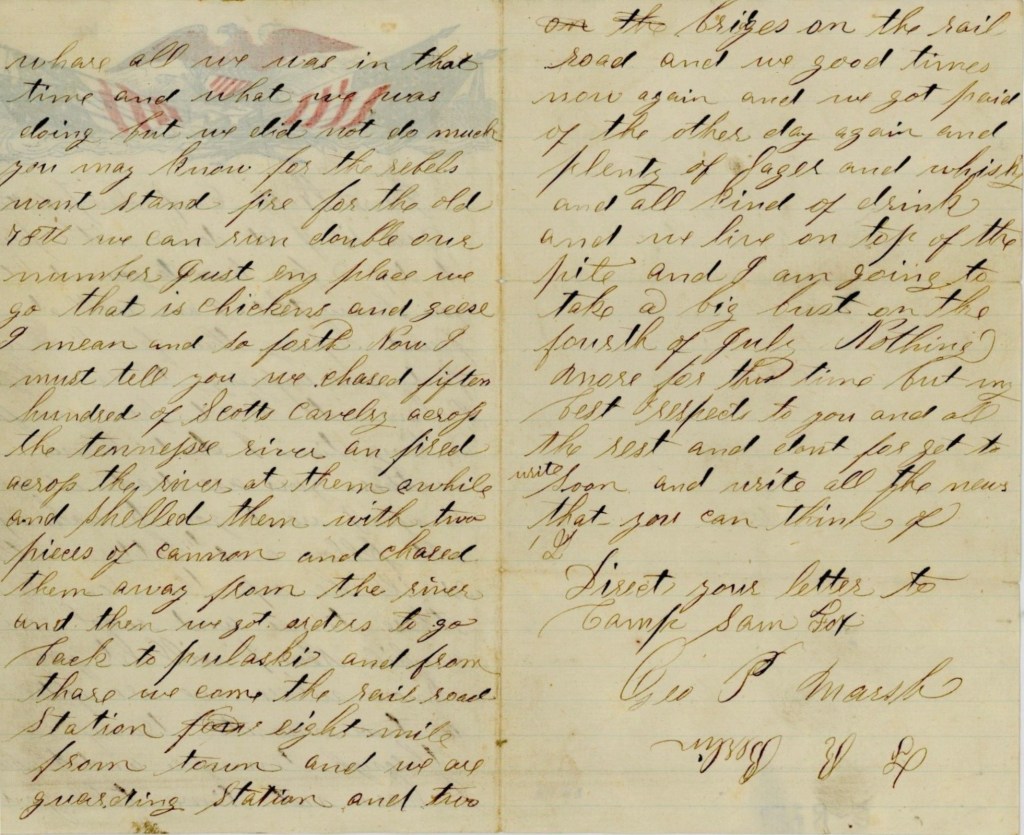 whare all we was in that
time and what we was
doing but we did not do much
you may know for the rebels
wont stand fire for the old
7th we can run double our
number Just eny place we
go that is chickens and geese
I mean and so forth Now I
must tell you we chased fiften
hundred of Scotts cavelry across
the tennessee river an fired
across the river at them awhile
and shelled them with two
pieces of cannon and chased
them away from the river
and then we got orders to go
back to pulaski and from
thare we come the rail road
Station four eight mile
from town and we are
guarding Station and two
on the briges on the rail
road and we good times
now again and we got paid
of the other day again and
plenty of Lager and whisky
and all kind of drink
and we live on top of the
pile and I am going to
take a big bust on the
fourth of July Nothing
more for this time but my
best respects to you and all
the rest and dont forget to
write soon and write all the news
that you can think of
Direct your letter to
Camp Sam Fox
Geo P Marsh